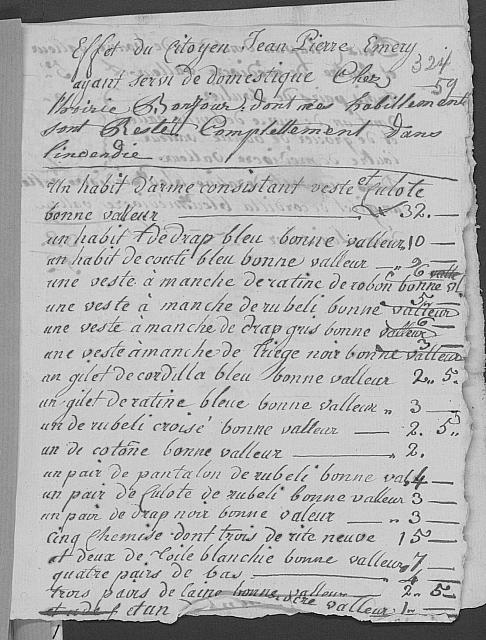 Effet du Citoyen Jean Pierre Emery
324
59
ayant servi de domestique Chez
Bonjour, dont mes habillement
sont Resté Complettement Dans
lincendie
un habit darme consistant veste et Culote
bonne valleur 32.
un habit de drap bleu bonne valleur 10
un habit de couti bleu bonne valleur
une veste à manche de ratine de bonne vll
une veste à manche de rubeli bonne valleur
une veste a manche de drap gris bonne valleur 6
une veste a manche de triege noir bonne valleur 3
un gilet de cordilla bleu bonne valleur 2.. 5.
un gilet de ratine bleue bonne valleur .. 3
un de rubeli croisé bonne valleur 2. 5
un de cotone bonne valleur 2.
un pair de pantalon de rubeli bonne 4
un pair de Culote de rubeli bonne valleur 3
un pair de drap noir bonne valeur .. 3
Cinq Chemise dont trois de rite neuve 15
et deux de toile blanchie bonne valleur 7
quatre pairs de bas 4
trois pairs de laine bonne valleur 2.. 5
etan valleur 1